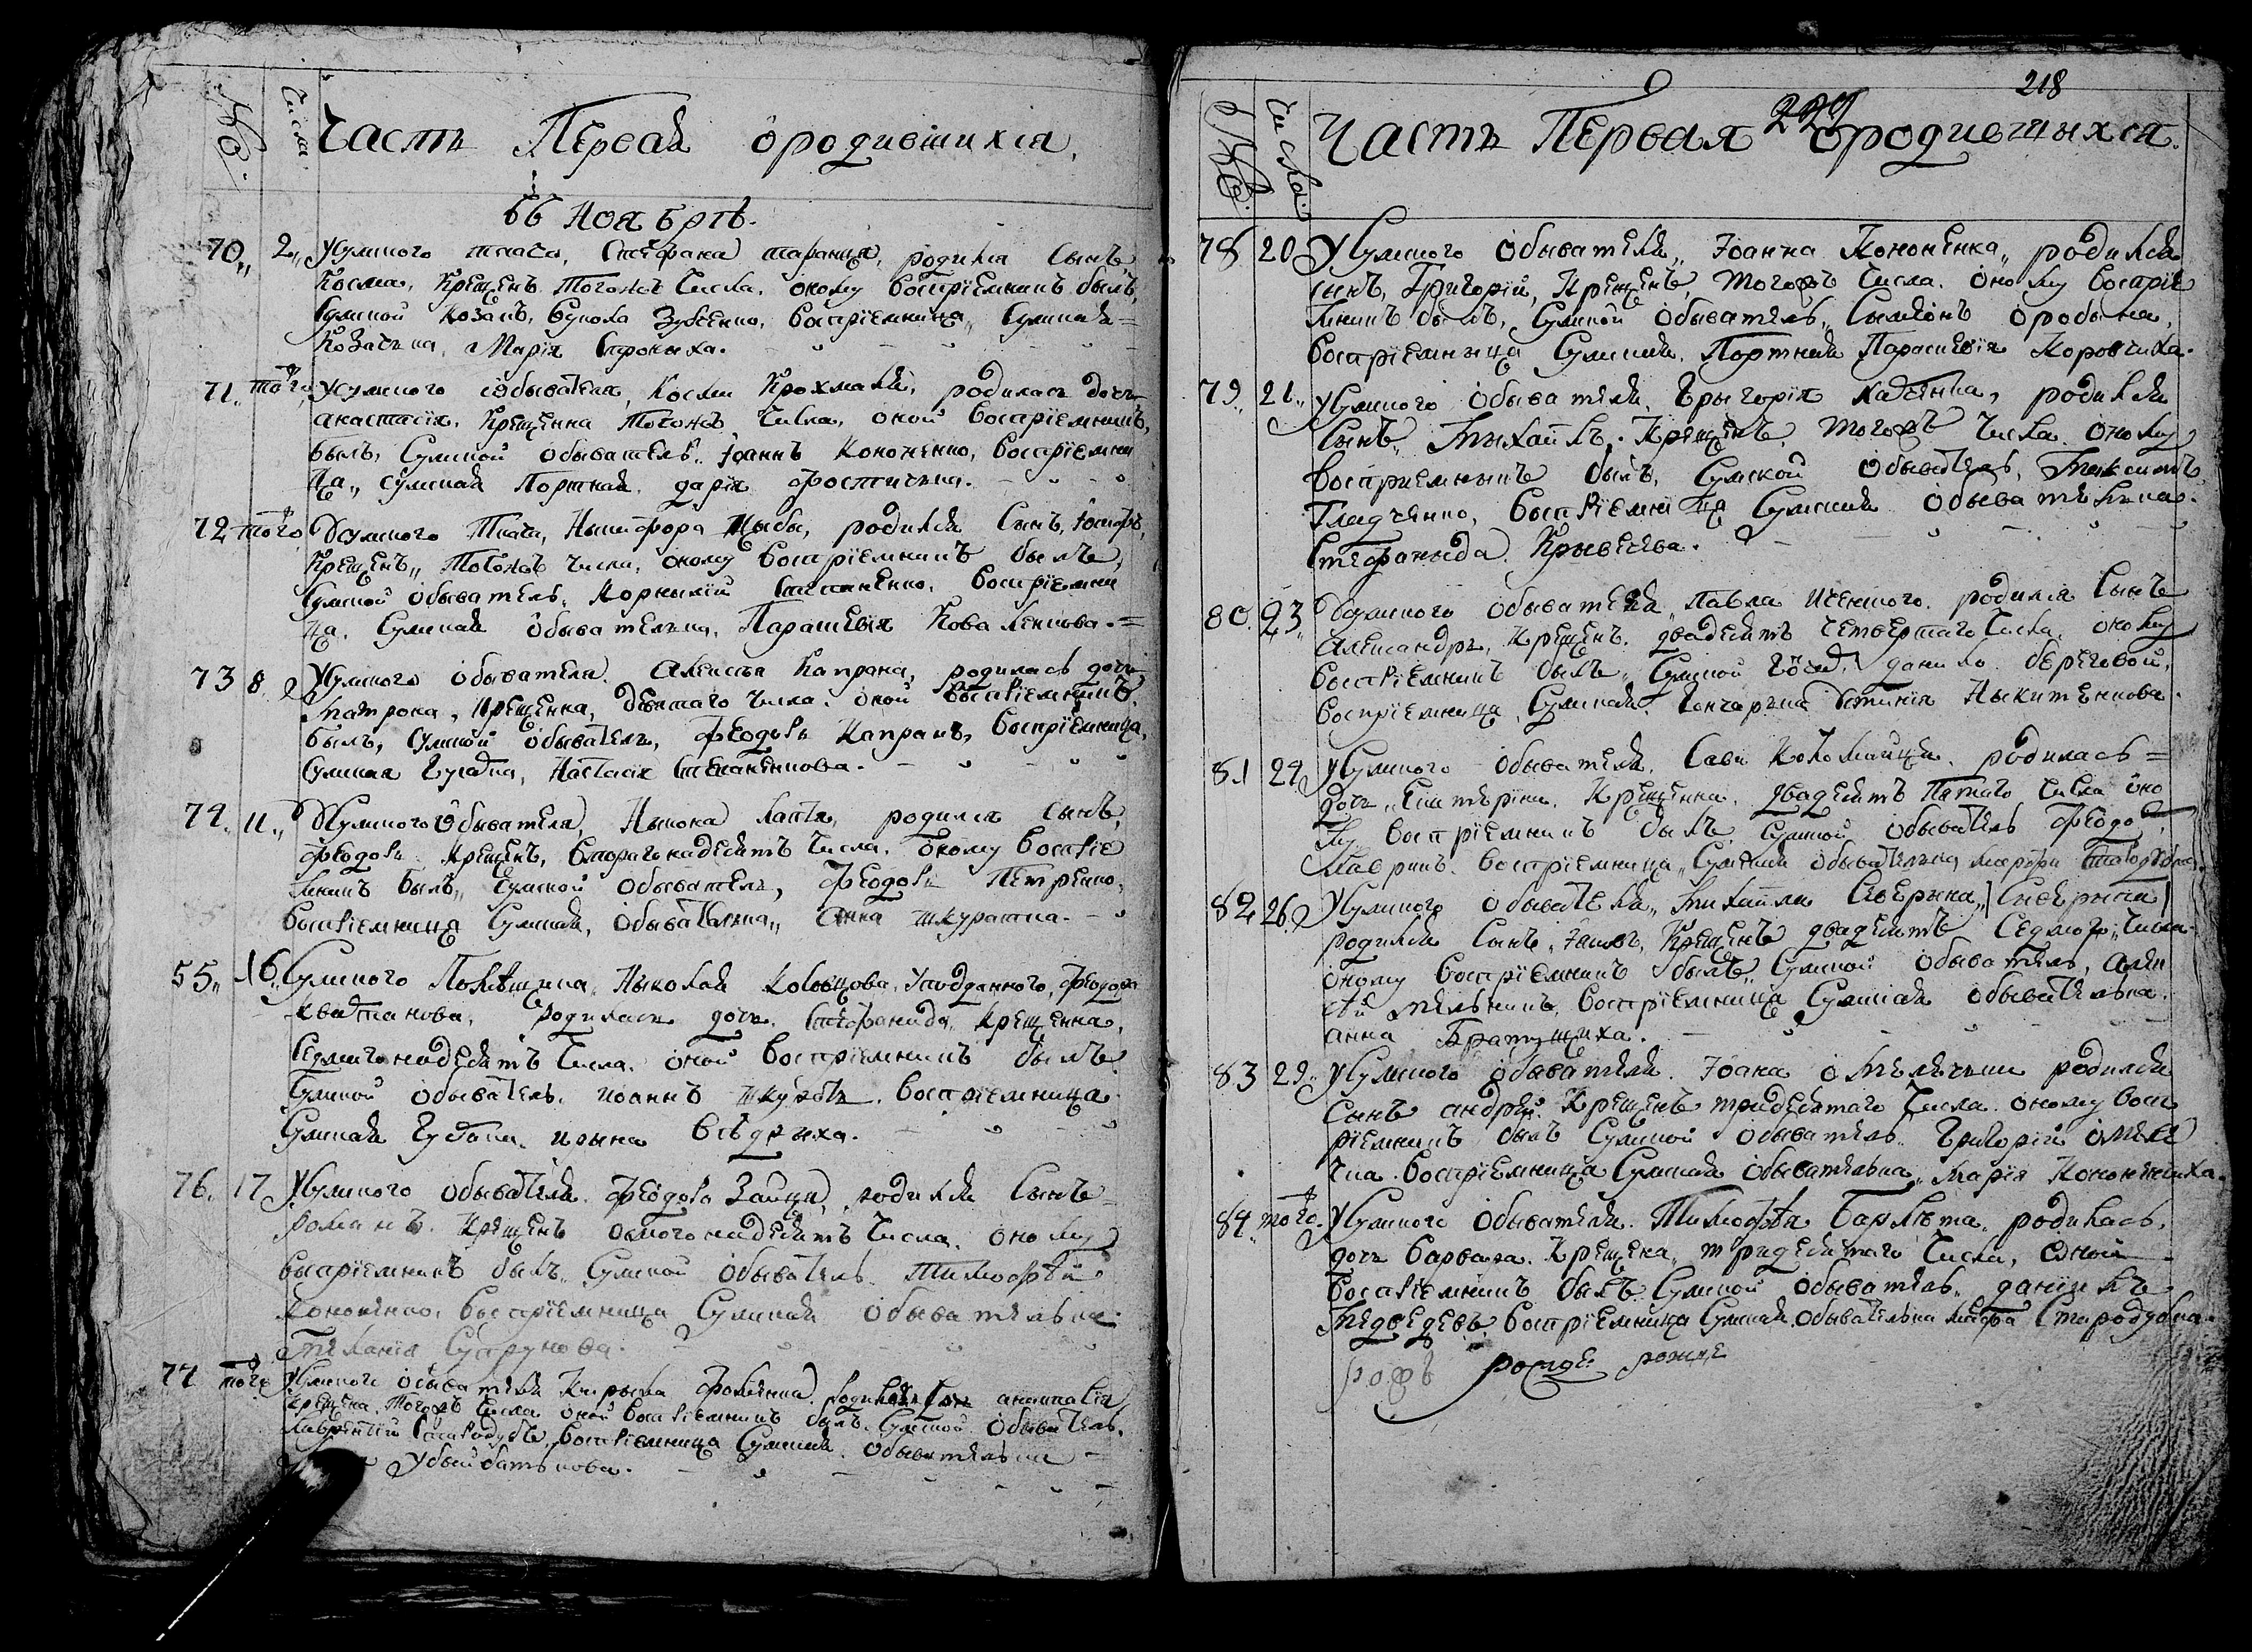 №
Числа.
Часть Первая ородившихся.
вѣ Ноябрѣ.
70,, 2,, Усумского ткача, Стефана таранця, родился сынъ
Косма, Крещенъ тогожъ числа. оному воспріемникъ былъ,
сумской Козакъ, Вукола Зубенко, воспріемница,, сумская =
Козачка, Марія Строныха.
71,, того, Усумского обывателя, Косми Крохмаля, родилась дочь
анастасія, Крещенна тогожъ числа, оной воспріемникъ,
былъ, сумской обыватель,, Іоаннъ Кононенко, воспріемни
ца,, сумская Портная. дарія Фостичька.
72 того, Усумского Ткача, Никифора Цыбы, родился сынъ, Іосифъ,
Крещенъ,, тогожъ числа, оному воспріемникъ былъ,
сумской обыватель, Корнилій Степаненко, воспріемни
ца, сумская обывателька, Параскевія Коваленкова. =
73 8. Усумского обывателя. Алексѣя Капрана, родилась дочь
Матрона, Крещенна, девятаго числа. оной воспріемникъ,
былъ, сумской обыватель, Феодоръ Капранъ, воспріемница,
сумская, Настасія Степаненкова.
74. 11,, Усумского обывателя, Никона лаптя, родился сынъ,
Феодоръ. Крещенъ, второгонадесять числа. оному воспріе
мникъ былъ,, сумской обыватель, Феодоръ Петренко,
воспріемница сумская, обывателька,, Анна шкуратка.
55,, 16,, Сумского Помѣщика,, Николая Ковощова, Уподданного, Феодора
Квашанова, родилась дочь. Стефанида,, Крещенна,
седмагонадесять числа. оной воспріемникъ былъ
сумской обыватель. Иоаннъ шкура. воспріемница
сумская. ирына.
76. 17 Усумского обывателя. Феодора Зайца, родился сынъ =
романъ. Крещенъ осмогонадесять числа. оному
воспріемникъ былъ,, сумской обыватель. Тимофѣй
Кононенко, воспріемница сумская обывателька.
Меланія Супрунова.
77 того Усумского обывателя Кирыла Фоменка. родилась дочь анатталія
Крещена. тогожъ числа оной воспріемникъ былъ. сумской обыватель.
лаврентій Стародубъ, воспріемница сумская. обывателька =
Убыйбатькова.
218
229
№
Числа.
Часть Первая ородившыхся.
78 20 Усумского обывателя,, Іоанна Кононенка,, родился
сынъ, Григорій, Крещенъ, тогожъ числа. оному воспріе
мникъ былъ, сумской обыватель,, Сымеонъ оробына,
воспріемныца сумская. Портная Параскевія Коровчиха.
79,, 21,, Усумского обывателя, Грыгорія, родился
сынъ,, Михайлъ,. Крещенъ, тогожъ числа. оному
воспріемныкъ былъ, сумской обыватель, Максимъ
Гладченко, воспріемница сумская обывателька.
Стефаныда. Крывцева.
80. 23,, Усумского обывателя,, Павла Исенкого. родился сынъ
Александръ, Крещенъ. двадесять четвертаго числа. оному
воспріемникъ былъ,, сумской данило береговой,
воспріемница, сумская. Гончарька Устинія Ныкитенкова.
81 24 Усумского обывателя. Сави Коломайця. родилась =
дочь,, Екатерина. Крещенна. двадесять пятаго числа оно
му. воспріемникъ былъ сумской обыватель Феодоръ
Мавринъ. воспріемница,, сумская обывателька марфа Стародубка.
82 26. Усумского обывателя,, Михайли Сѣверина,,
родился сынъ, Іаковъ, Крещенъ двадесять седмого,, числа.
оному воспріемникъ былъ,, сумской обыватель, алек
сѣй мельникъ, воспріемница сумская обывателька.
анна Братущиха.
83 29,, Усумского обывателя. Іоана омельячьки родился
сынъ андрей. Крещенъ тридесятаго числа. оному восп
ріемникъ былъ сумской обыватель. Григорій омеле
чка. воспріемница сумская обывателька,, Марія Кононенкиха.
84,, того. Усумского обывателя. Тимофѣя Барлѣта,, родилась,
дочь варвара. Крещена,, тридесятаго числа, оной
воспріемникъ былъ сумской обыватель,, даниилъ
Медведевъ. воспріемница сумская обывателька марфа Стародубка.